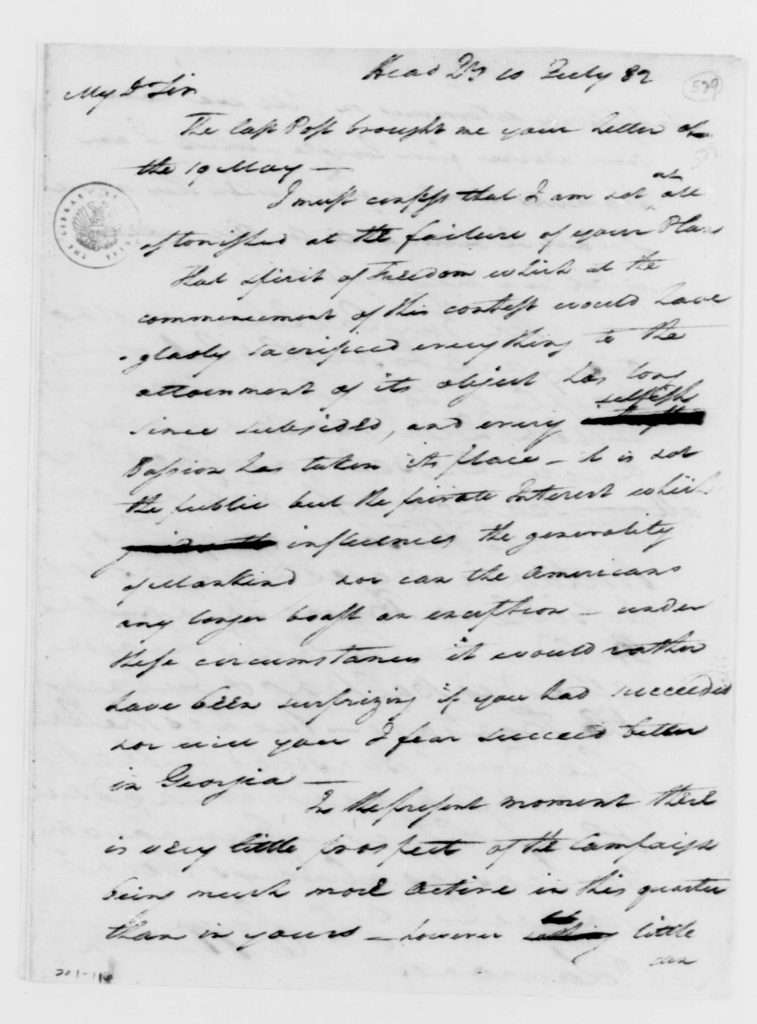 Head Qrs 10 July 82
529
My Dr Sir
The last Post brought me your Letter of
the 19 May —
I must confess that I am not at all
astonished at the failure of your Plan
that spirit of Freedom which at the
commencement of this contest would have
gladly sacrificed everything to the
attainment of its object has long
since subsided, and every selfish
Passion has taken its place — it is not
the public but the private Interest which
influences the generality
of Mankind nor can the Americans
any longer boast an exception — under
these circumstances it would rather
have been surprizing if you had succeeded
nor will you I fear succeed better
in Georgia —
In the present moment there
is very little prospect of the Campaign
being much more active in this quarter
than in yours — however little
can
THE LIBRARY OF
201-110